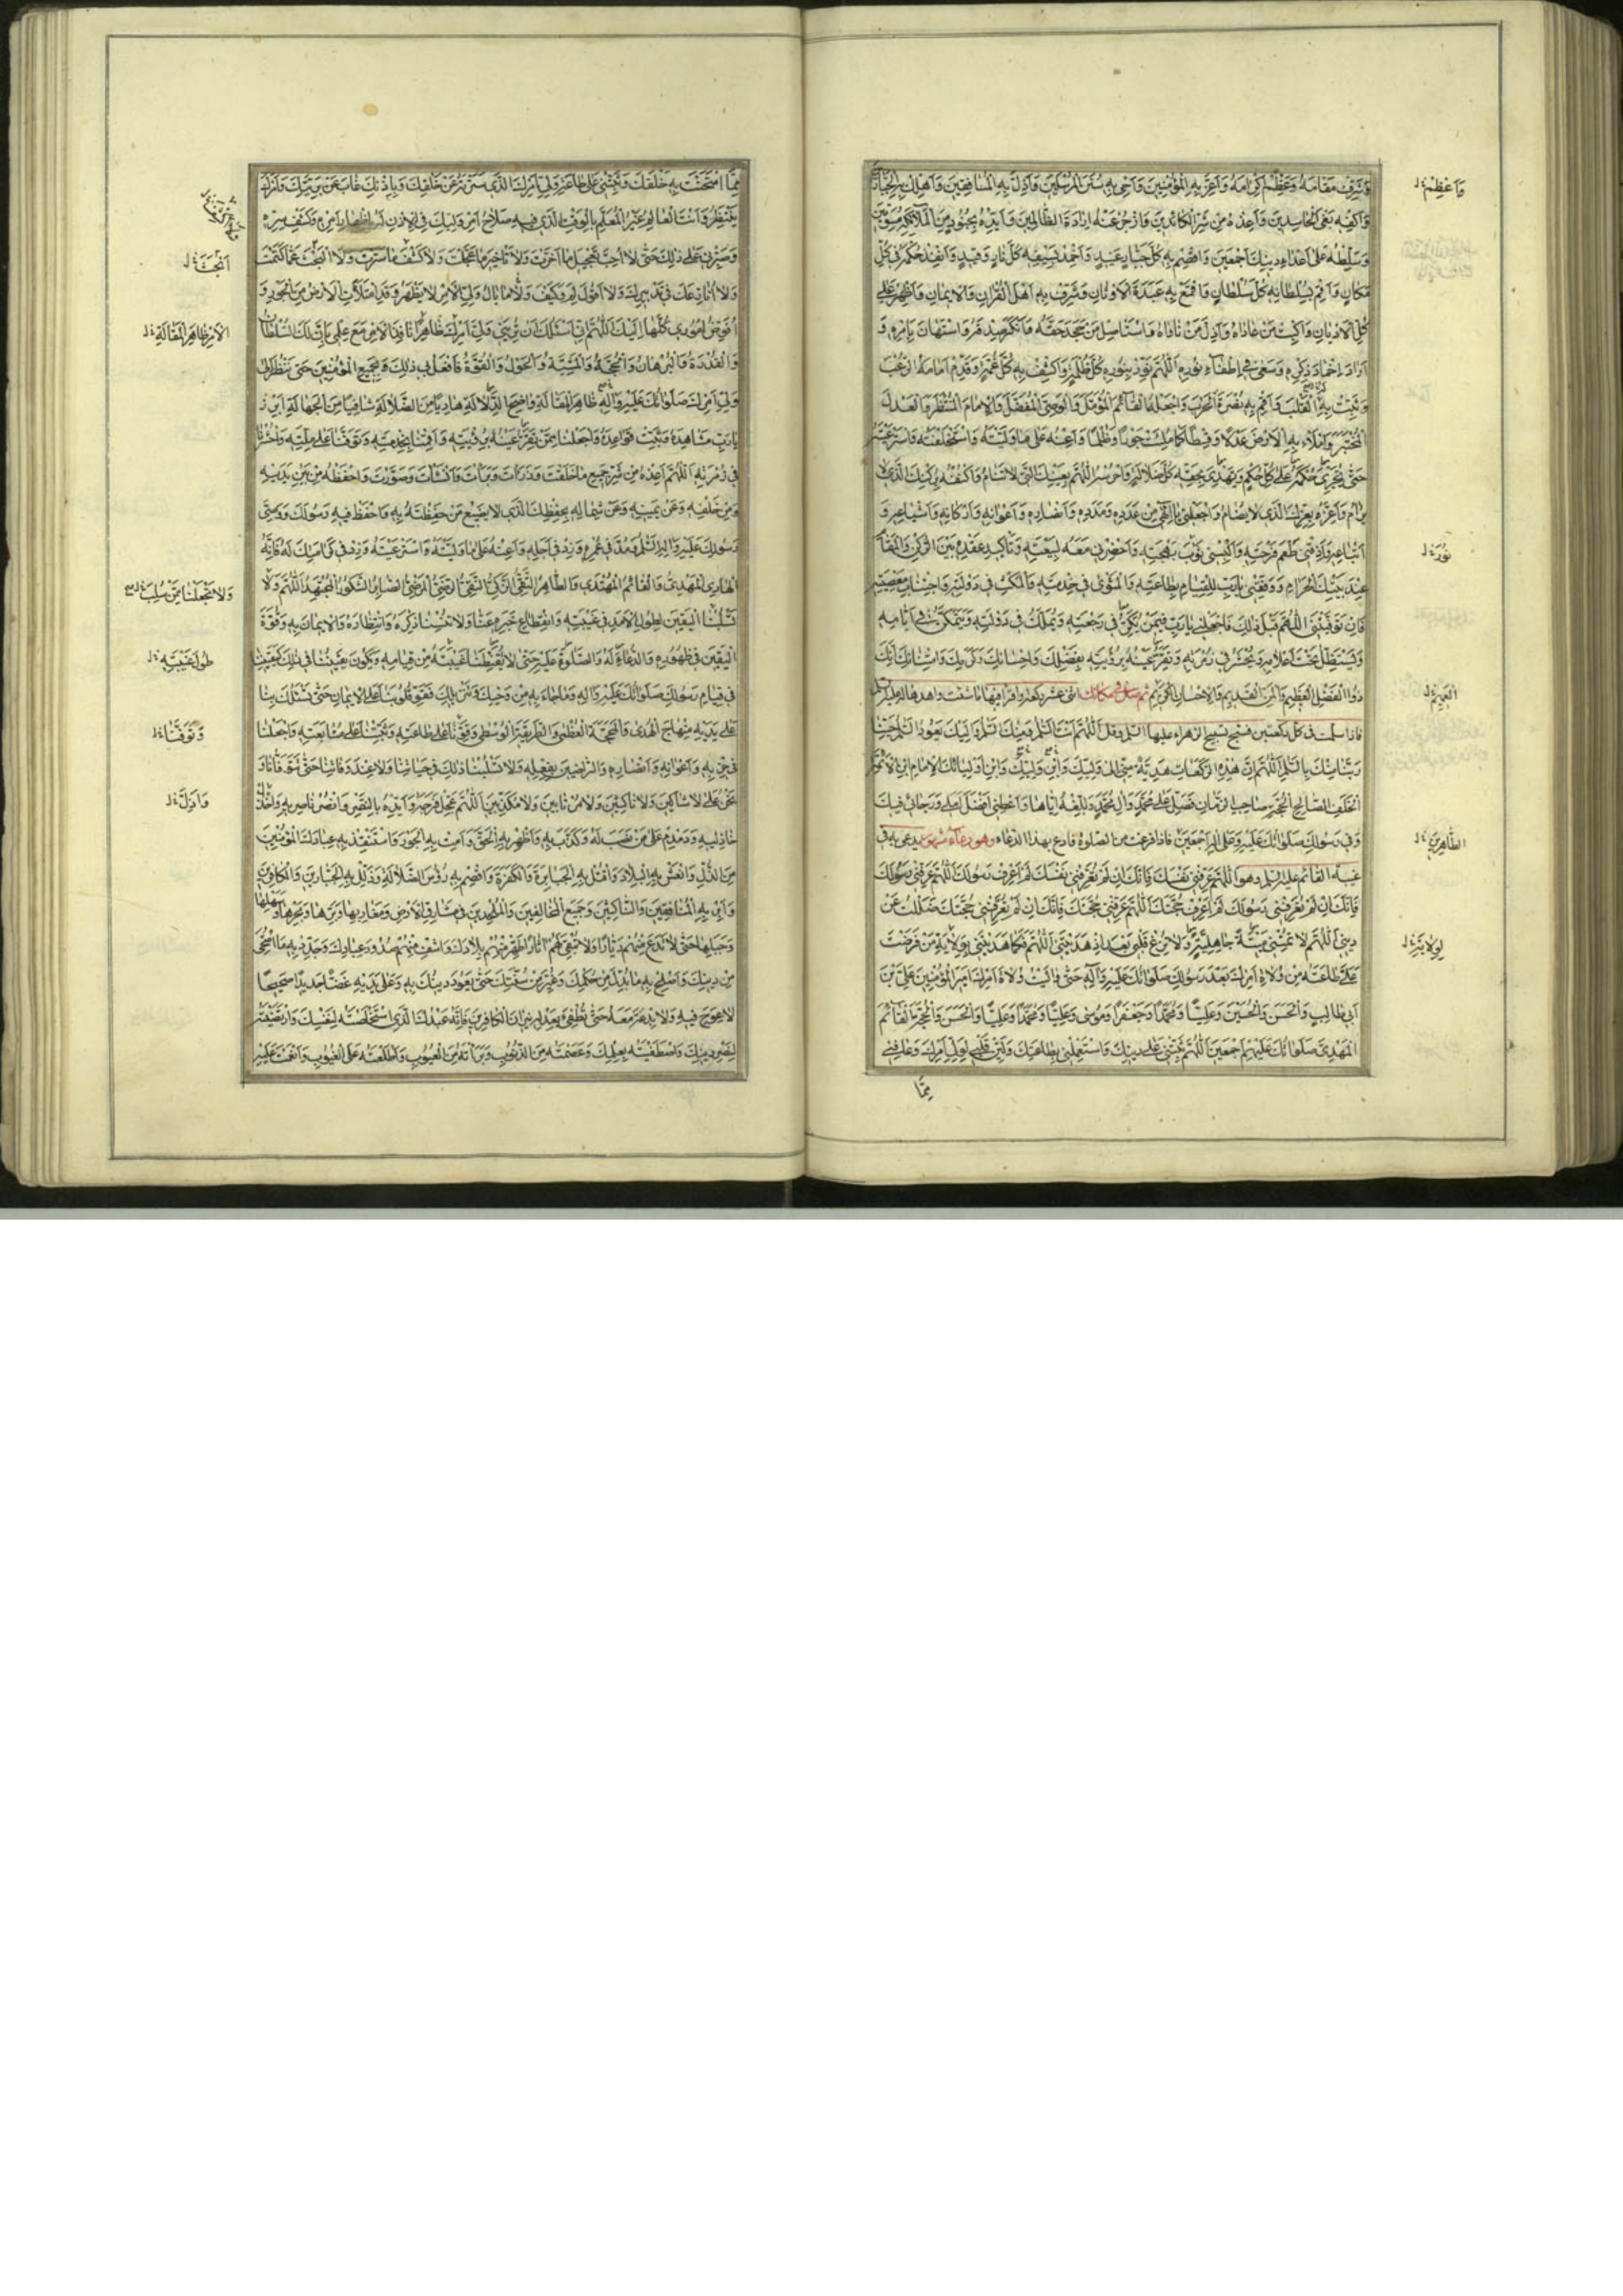 وَشَرِّفْ مَقَامَهُ وَعَظِّمْ اِكْرَامَهُ وَاَعِزَّ بِهِ الْمُؤْمِنِينَ وَاَحْيِ بِهِ سُنَنَ الْمُرْسَلِينَ وَاَذِلَّ بِهِ الْمُنَافِقِينَ وَاَهْلِكْ بِهِ الْجَبَّارِينَ
وَاكْفِهِ بَغْيَ الْحَاسِدِينَ وَاَعِذْهُ مِنْ شَرِّ الْكَائِدِينَ وَازْجُرْ عَنْهُ اِرَادَةَ الظَّالِمِينَ وَاَيِّدْهُ بِجُنُودٍ مِنَ الْمَلَائِكَةِ مُسَوِّمِينَ
وَسَلِّطْهُ عَلَى اَعْدَاءِ دِينِكَ اَجْمَعِينَ وَاقْصِمْ بِهِ كُلَّ جَبَّارٍ عَنِيدٍ وَاَخْمِدْ بِسَيْفِهِ كُلَّ نَارٍ وَقِيدٍ وَاَنْفِذْ حُكْمَهُ فِي كُلِّ
مَكَانٍ وَاَقِمْ بِسُلْطَانِهِ كُلَّ سُلْطَانٍ وَاقْمَعْ بِهِ عَبَدَةَ الْاَوْثَانِ وَشَرِّفْ بِهِ اَهْلَ الْقُرْاٰنِ وَالْاِيمَانِ وَاَظْهِرْهُ عَلَى
كُلِّ الْاَدْيَانِ وَاكْبِتْ مَنْ عَادَاهُ وَاَذِلَّ مَنْ نَاوَاهُ وَاسْتَأْصِلْ مَنْ جَحَدَ حَقَّهُ وَاَنْكَرَ صِدْقَهُ وَاسْتَهَانَ بِاَمْرِهِ وَ
اَرَادَ اِخْمَادَ ذِكْرِهِ وَسَعَى فِي اِطْفَاءِ نُورِهِ اَللّٰهُمَّ نَوِّرْ بِنُورِهِ كُلَّ ظُلْمَةٍ وَاكْشِفْ بِهِ كُلَّ غُمَّةٍ وَقَدِّمْ اَمَامَهُ الرُّعْبَ
وَثَبِّتْ بِهِ الْقَلْبَ وَاَقِمْ بِهِ نُصْرَةَ الْحَرْبِ وَاجْعَلْهُ الْقَائِمَ الْمُؤَمَّلَ وَالْوَصِيَّ الْمُفَضَّلَ وَالْاِمَامَ الْمُنْتَظَرَ وَالْعَدْلَ
الْمُخْتَبَرَ وَامْلَاْ بِهِ الْاَرْضَ عَدْلًا وَقِسْطًا كَمَا مُلِئَتْ جَوْرًا وَظُلْمًا وَاَعِنْهُ عَلَى مَا وَلَّيْتَهُ وَاسْتَخْلَفْتَهُ وَاسْتَرْعَيْتَهُ
حَتَّى يُجْرِيَ حُكْمَهُ عَلَى كُلِّ حُكْمٍ وَيَهْدِيَ بِحَقِّهِ كُلَّ ضَلَالَةٍ وَاحْرُسْهُ اللّٰهُمَّ بِعَيْنِكَ الَّتِي لَا تَنَامُ وَاكْنُفْهُ بِرُكْنِكَ الَّذِي لَا
يُرَامُ وَاَعِزَّهُ بِعِزِّكَ الَّذِي لَا يُضَامُ وَاجْعَلْنِي يَا اِلٰهِي مِنْ عَدَدِهِ وَمَدَدِهِ وَاَنْصَارِهِ وَاَعْوَانِهِ وَاَرْكَانِهِ وَاَشْيَاعِهِ وَ
اَتْبَاعِهِ وَاَذِقْنِي طَعْمَ فَرْحَتِهِ وَاَلْبِسْنِي ثَوْبَ بَهْجَتِهِ وَاَحْضِرْنِي مَعَهُ لِبَيْعَتِهِ وَتَأْكِيدِ عَقْدِهِ بَيْنَ الرُّكْنِ وَالْمَقَامِ
عِنْدَ بَيْتِكَ الْحَرَامِ وَوَفِّقْنِي يَا رَبِّ لِلْقِيَامِ بِطَاعَتِهِ وَالْمَثْوَى فِي خِدْمَتِهِ وَالْمَكْثِ فِي دَوْلَتِهِ وَاجْتِنَابِ مَعْصِيَتِهِ
فَاِنْ تَوَفَّيْتَنِي اللّٰهُمَّ قَبْلَ ذٰلِكَ فَاجْعَلْنِي يَا رَبِّ فِيمَنْ يَكُرُّ فِي رَجْعَتِهِ وَيُمَلَّكُ فِي دَوْلَتِهِ وَيَتَمَكَّنُ فِي اَيَّامِهِ
وَيَسْتَظِلُّ تَحْتَ اَعْلَامِهِ وَيُحْشَرُ فِي زُمْرَتِهِ وَتَقَرُّ عَيْنُهُ بِرُؤْيَتِهِ بِفَضْلِكَ وَاِحْسَانِكَ وَكَرَمِكَ وَامْتِنَانِكَ اِنَّكَ
ذُو الْفَضْلِ الْعَظِيمِ وَالْمَنِّ الْقَدِيمِ وَالْاِحْسَانِ الْكَرِيمِ ثم صل في مكانك اثنى عشر ركعة واقرأ فيها ما شئت واهدها له عليه السلام
فاذا سلمت في كل ركعتين فسبح تسبيح الزهراء عليها السلم وقل اَللّٰهُمَّ اَنْتَ السَّلٰمُ وَمِنْكَ السَّلٰمُ وَاِلَيْكَ يَعُودُ السَّلٰمُ حَيِّنَا
رَبَّنَا مِنْكَ بِالسَّلٰمِ اَللّٰهُمَّ اِنَّ هٰذِهِ الرَّكَعَاتِ هَدِيَّةٌ مِنِّي اِلَى وَلِيِّكَ وَابْنِ وَلِيِّكَ وَابْنِ اَوْلِيَائِكَ الْاِمَامِ ابْنِ الْاَئِمَّةِ
الْخَلَفِ الصَّالِحِ الْحُجَّةِ صَاحِبِ الزَّمَانِ فَصَلِّ عَلَى مُحَمَّدٍ وَاٰلِ مُحَمَّدٍ وَبَلِّغْهُ اِيَّاهَا وَاَعْطِنِي اَفْضَلَ اَمَلِي وَرَجَائِي فِيكَ
وَفِي رَسُولِكَ صَلَوَاتُكَ عَلَيْهِ وَعَلَى اٰلِهِ اَجْمَعِينَ فاذا فرغت من الصلوة فادع بهذا الدعاء وهو دعاء مشهور يدعى به في
غيبة القائم عليه السلم وهو اَللّٰهُمَّ عَرِّفْنِي نَفْسَكَ فَاِنَّكَ اِنْ لَمْ تُعَرِّفْنِي نَفْسَكَ لَمْ اَعْرِفْ رَسُولَكَ اَللّٰهُمَّ عَرِّفْنِي رَسُولَكَ
فَاِنَّكَ اِنْ لَمْ تُعَرِّفْنِي رَسُولَكَ لَمْ اَعْرِفْ حُجَّتَكَ اَللّٰهُمَّ عَرِّفْنِي حُجَّتَكَ فَاِنَّكَ اِنْ لَمْ تُعَرِّفْنِي حُجَّتَكَ ضَلَلْتُ عَنْ
دِينِي اَللّٰهُمَّ لَا تُمِتْنِي مِيتَةً جَاهِلِيَّةً وَلَا تُزِغْ قَلْبِي بَعْدَ اِذْ هَدَيْتَنِي اَللّٰهُمَّ فَكَمَا هَدَيْتَنِي بِوِلَايَةِ مَنْ فَرَضْتَ
عَلَيَّ طَاعَتَهُ مِنْ وُلَاةِ اَمْرِكَ بَعْدَ رَسُولِكَ صَلَوَاتُكَ عَلَيْهِ وَاٰلِهِ حَتَّى وَالَيْتُ وُلَاةَ اَمْرِكَ اَمِيرَ الْمُؤْمِنِينَ عَلِيَّ بْنَ
اَبِي طَالِبٍ وَالْحَسَنَ وَالْحُسَيْنَ وَعَلِيًّا وَمُحَمَّدًا وَجَعْفَرًا وَمُوسَى وَعَلِيًّا وَمُحَمَّدًا وَعَلِيًّا وَالْحَسَنَ وَالْحُجَّةَ الْقَائِمَ
الْمَهْدِيَّ صَلَوَاتُكَ عَلَيْهِمْ اَجْمَعِينَ اَللّٰهُمَّ ثَبِّتْنِي عَلَى دِينِكَ وَاسْتَعْمِلْنِي بِطَاعَتِكَ وَلَيِّنْ قَلْبِي لِوَلِيِّ اَمْرِكَ وَعَافِنِي
مِمَّا
وَاَعْظِمْ
نُورَهُ
الْعَمِيمِ
الطَّاهِرِينَ
لِوِلَايَةِ
مِمَّا امْتَحَنْتَ بِهِ خَلْقَكَ وَثَبِّتْنِي عَلَى طَاعَةِ وَلِيِّ اَمْرِكَ الَّذِي سَتَرْتَهُ عَنْ خَلْقِكَ وَبِاِذْنِكَ غَابَ عَنْ بَرِيَّتِكَ وَاَمْرَكَ
يَنْتَظِرُ وَاَنْتَ الْعَالِمُ غَيْرُ الْمُعَلَّمِ بِالْوَقْتِ الَّذِي فِيهِ صَلَاحُ اَمْرِ وَلِيِّكَ فِي الْاِذْنِ لَهُ بِاِظْهَارِ اَمْرِهِ وَكَشْفِ سِتْرِهِ
وَصَبِّرْنِي عَلَى ذٰلِكَ حَتَّى لَا اُحِبَّ تَعْجِيلَ مَا اَخَّرْتَ وَلَا تَأْخِيرَ مَا عَجَّلْتَ وَلَا كَشْفَ مَا سَتَرْتَ وَلَا الْبَحْثَ عَمَّا كَتَمْتَ
وَلَا اُنَازِعَكَ فِي تَدْبِيرِكَ وَلَا اَقُولَ لِمَ وَكَيْفَ وَلَا مَا بَالُ وَلِيِّ الْاَمْرِ لَا يَظْهَرُ وَقَدِ امْتَلَأَتِ الْاَرْضُ مِنَ الْجَوْرِ وَ
اُفَوِّضُ اُمُورِي كُلَّهَا اِلَيْكَ اَللّٰهُمَّ اِنِّي اَسْئَلُكَ اَنْ تُرِيَنِي وَلِيَّ اَمْرِكَ ظَاهِرًا نَافِذَ الْاَمْرِ مَعَ عِلْمِي بِاَنَّ لَكَ السُّلْطَانَ
وَالْقُدْرَةَ وَالْبُرْهَانَ وَالْحُجَّةَ وَالْمَشِيَّةَ وَالْحَوْلَ وَالْقُوَّةَ فَافْعَلْ بِي ذٰلِكَ وَبِجَمِيعِ الْمُؤْمِنِينَ حَتَّى نَنْظُرَ اِلَى
وَلِيِّ اَمْرِكَ صَلَوَاتُكَ عَلَيْهِ وَاٰلِهِ ظَاهِرَ الْمَقَالَةِ وَاضِحَ الدَّلَالَةِ هَادِيًا مِنَ الضَّلَالَةِ شَافِيًا مِنَ الْجَهَالَةِ اَبْرِزْ
يَا رَبِّ مَشَاهِدَهُ وَثَبِّتْ قَوَاعِدَهُ وَاجْعَلْنَا مِمَّنْ تَقَرُّ عَيْنُهُ بِرُؤْيَتِهِ وَاَقِمْنَا بِخِدْمَتِهِ وَتَوَفَّنَا عَلَى مِلَّتِهِ وَاحْشُرْنَا
فِي زُمْرَتِهِ اَللّٰهُمَّ اَعِذْهُ مِنْ شَرِّ جَمِيعِ مَا خَلَقْتَ وَذَرَأْتَ وَبَرَأْتَ وَاَنْشَأْتَ وَصَوَّرْتَ وَاحْفَظْهُ مِنْ بَيْنِ يَدَيْهِ
وَمِنْ خَلْفِهِ وَعَنْ يَمِينِهِ وَعَنْ شِمَالِهِ بِحِفْظِكَ الَّذِي لَا يَضِيعُ مَنْ حَفِظْتَهُ بِهِ وَاحْفَظْ فِيهِ رَسُولَكَ وَوَصِيَّ
رَسُولِكَ عَلَيْهِ وَاٰلِهِ السَّلٰمُ وَمُدَّ فِي عُمْرِهِ وَزِدْ فِي اَجَلِهِ وَاَعِنْهُ عَلَى مَا وَلَّيْتَهُ وَاسْتَرْعَيْتَهُ وَزِدْ فِي كَرَامَتِكَ لَهُ فَاِنَّهُ
الْهَادِي الْمَهْدِيُّ وَالْقَائِمُ الْمُهْتَدِي وَالطَّاهِرُ التَّقِيُّ الزَّكِيُّ النَّقِيُّ الرَّضِيُّ الْمَرْضِيُّ الصَّابِرُ الشَّكُورُ الْمُجْتَهِدُ اَللّٰهُمَّ وَلَا
تَسْلُبْنَا الْيَقِينَ لِطُولِ الْاَمَدِ فِي غَيْبَتِهِ وَانْقِطَاعِ خَبَرِهِ عَنَّا وَلَا تُنْسِنَا ذِكْرَهُ وَانْتِظَارَهُ وَالْاِيمَانَ بِهِ وَقُوَّةَ
الْيَقِينِ فِي ظُهُورِهِ وَالدُّعَاءَ لَهُ وَالصَّلٰوةَ عَلَيْهِ حَتَّى لَا يُقَنِّطَنَا غَيْبَتُهُ مِنْ قِيَامِهِ وَيَكُونَ يَقِينُنَا فِي ذٰلِكَ كَيَقِينِنَا
فِي قِيَامِ رَسُولِكَ صَلَوَاتُكَ عَلَيْهِ وَاٰلِهِ وَمَا جَاءَ بِهِ مِنْ وَحْيِكَ وَتَنْزِيلِكَ فَقَوِّ قُلُوبَنَا عَلَى الْاِيمَانِ حَتَّى تَسْلُكَ بِنَا
عَلَى يَدَيْهِ مِنْهَاجَ الْهُدَى وَالْمَحَجَّةَ الْعُظْمَى وَالطَّرِيقَةَ الْوُسْطَى وَقَوِّنَا عَلَى طَاعَتِهِ وَثَبِّتْنَا عَلَى مُتَابَعَتِهِ وَاجْعَلْنَا
فِي حِزْبِهِ وَاَعْوَانِهِ وَاَنْصَارِهِ وَالرَّاضِينَ بِفِعْلِهِ وَلَا تَسْلُبْنَا ذٰلِكَ فِي حَيَاتِنَا وَلَا عِنْدَ وَفَاتِنَا حَتَّى تَتَوَفَّانَا وَ
نَحْنُ عَلَى ذٰلِكَ لَا شَاكِّينَ وَلَا نَاكِثِينَ وَلَا مُرْتَابِينَ وَلَا مُكَذِّبِينَ اَللّٰهُمَّ عَجِّلْ فَرَجَهُ وَاَيِّدْهُ بِالنَّصْرِ وَانْصُرْ نَاصِرِيهِ وَاخْذُلْ
خَاذِلِيهِ وَدَمْدِمْ عَلَى مَنْ نَصَبَ لَهُ وَكَذَّبَ بِهِ وَاَظْهِرْ بِهِ الْحَقَّ وَاَمِتْ بِهِ الْجَوْرَ وَاسْتَنْقِذْ بِهِ عِبَادَكَ الْمُؤْمِنِينَ
مِنَ الذُّلِّ وَانْعَشْ بِهِ الْبِلَادَ وَاقْتُلْ بِهِ الْجَبَابِرَةَ وَالْكَفَرَةَ وَاقْصِمْ بِهِ رُؤُسَ الضَّلَالَةِ وَذَلِّلْ بِهِ الْجَبَّارِينَ وَالْكَافِرِينَ
وَاَبِرْ بِهِ الْمُنَافِقِينَ وَالنَّاكِثِينَ وَجَمِيعَ الْمُخَالِفِينَ وَالْمُلْحِدِينَ فِي مَشَارِقِ الْاَرْضِ وَمَغَارِبِهَا وَبَرِّهَا وَبَحْرِهَا وَسَهْلِهَا
وَجَبَلِهَا حَتَّى لَا تَدَعَ مِنْهُمْ دَيَّارًا وَلَا تُبْقِيَ لَهُمْ اٰثَارًا طَهِّرْ مِنْهُمْ بِلَادَكَ وَاشْفِ مِنْهُمْ صُدُورَ عِبَادِكَ وَجَدِّدْ بِهِ مَا امْتَحَى
مِنْ دِينِكَ وَاَصْلِحْ بِهِ مَا بُدِّلَ مِنْ حُكْمِكَ وَغُيِّرَ مِنْ سُنَّتِكَ حَتَّى يَعُودَ دِينُكَ بِهِ وَعَلَى يَدَيْهِ غَضًّا جَدِيدًا صَحِيحًا
لَا عِوَجَ فِيهِ وَلَا بِدْعَةَ مَعَهُ حَتَّى تُطْفِئَ بِعَدْلِهِ نِيرَانَ الْكَافِرِينَ فَاِنَّهُ عَبْدُكَ الَّذِي اسْتَخْلَصْتَهُ لِنَفْسِكَ وَارْتَضَيْتَهُ
لِنَصْرِ دِينِكَ وَاصْطَفَيْتَهُ بِعِلْمِكَ وَعَصَمْتَهُ مِنَ الذُّنُوبِ وَبَرَّأْتَهُ مِنَ الْعُيُوبِ وَاَطْلَعْتَهُ عَلَى الْغُيُوبِ وَاَنْعَمْتَ عَلَيْهِ
اَبْحَثَ
الْاَمْرِ ظَاهِرَ الْمَقَالَةِ
وَلَا تَجْعَلْنَا مِمَّنْ سُلِبَ
طُولُ غَيْبَتِهِ
وَتَوَفَّنَا
وَاَذِلَّ